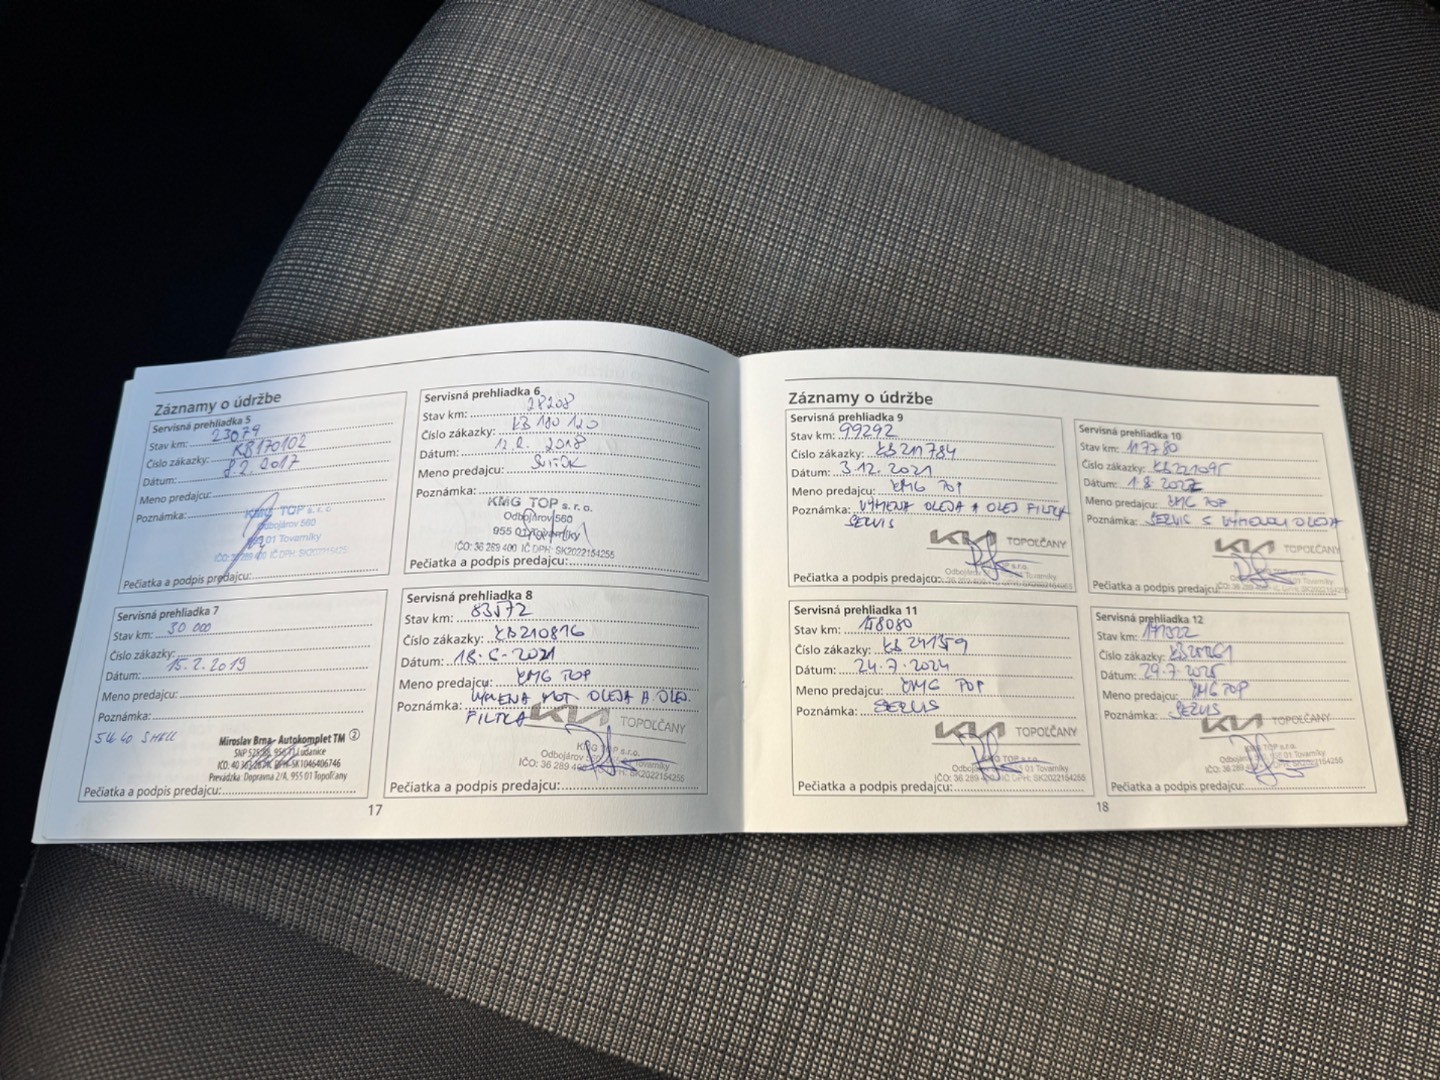 Záznamy o údržbe
Servisná prehliadka 5
Stav km: 23079
Číslo zákazky: KB170102
Dátum: 8.2.2017
Meno predajcu:
Poznámka:
KMG TOP s. r. o.
Odbojárov 560
01 Tovarníky
IČO: 36 289 400 IČ DPH: SK2022154255
Pečiatka a podpis predajcu:
Servisná prehliadka 6
Stav km: 28208
Číslo zákazky: KB 180 120
Dátum: 12.2. 2018
Meno predajcu:
Poznámka:
KMG TOP s. r. o.
Odbojárov 560
955 01 Tovarníky
IČO: 36 289 400 IČ DPH: SK2022154255
Pečiatka a podpis predajcu:
Servisná prehliadka 7
Stav km: 30 000
Číslo zákazky:
Dátum: 15.2.2019
Meno predajcu:
Poznámka:
5W40 SHELL
Miroslav Brna- Autokomplet TM ②
Ludanice
Prevádzka: Dopravna 2/A, 955 01 Topoľčany
Pečiatka a podpis predajcu:
Servisná prehliadka 8
Stav km: 83572
Číslo zákazky: KB210816
Dátum: 18.6.2021
Meno predajcu: KMG TOP
Poznámka: VÝMENA MOT OLEJA A OLEJ.
FILTRA
KIA TOPOĽČANY
KMG TOP s.r.o.
Odbojárov
IČO: 36 289 400 IČ DPH: SK2022154255
Pečiatka a podpis predajcu:
17
Záznamy o údržbe
Servisná prehliadka 9
Stav km: 99292
Číslo zákazky: KB211784
Dátum: 3.12.2021
Meno predajcu: KMG TOP
Poznámka: VÝMENA OLEJA A OLEJ FILTRA
SERVIS
KIA TOPOĽČANY
Odbojárov Tovarníky
36 289 400 IČ DPH: SK2022154255
Pečiatka a podpis predajcu:
Servisná prehliadka 10
Stav km: 117780
Číslo zákazky: KB221095
Dátum: 1.8.2022
Meno predajcu: KMG TOP
Poznámka: SERVIS S VÝMENOU OLEJA
KIA TOPOĽČANY
Pečiatka a podpis predajcu:
Servisná prehliadka 11
Stav km: 158080
Číslo zákazky: KB241359
Dátum: 24.7.2024
Meno predajcu: KMG TOP
Poznámka: SERVIS
KIA TOPOĽČANY
01 Tovarníky
IČO: 36 289 IČ DPH: SK2022154255
Pečiatka a podpis predajcu:
Servisná prehliadka 12
Stav km:
Číslo zákazky:
Dátum: 29.7.2025
Meno predajcu: KMG TOP
Poznámka: SERVIS
KIA TOPOĽČANY
KMG TOP s.r.o.
01 Tovarníky
IČO: 36 289 DPH: SK2022154255
Pečiatka a podpis predajcu:
18